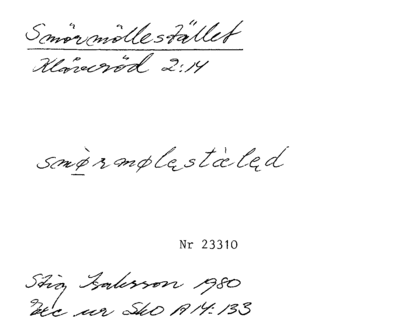 Smörmöllestället
Klöveröd 2:14
smø̀rmølęstàlęd
Nr 23310
Stig Isaksson 1980
Exc ur SkO A 14:133